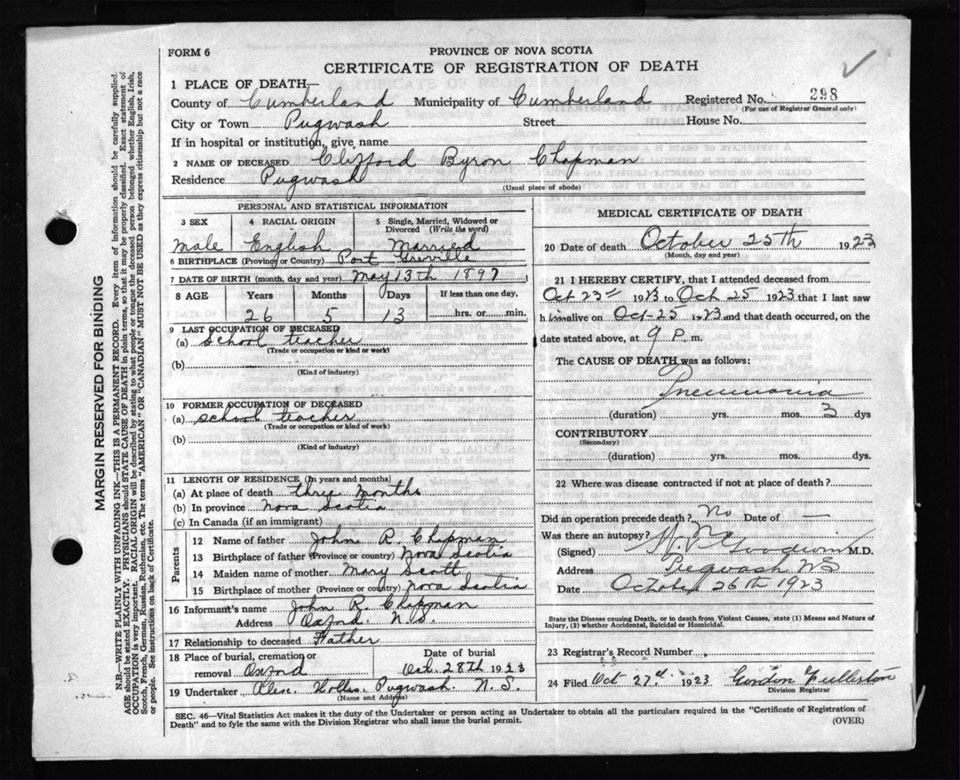 FORM 6
PROVINCE OF NOVA SCOTIA
CERTIFICATE OF REGISTRATION OF DEATH
1 PLACE OF DEATH—
County of Cumberland Municipality of Cumberland Registered No. 298
(For use of Registrar General only)
City or Town Pugwash Street House No.
If in hospital or institution, give name
2 NAME OF DECEASED Clifford Byron Chapman
Residence Pugwash
(Usual place of abode)
PERSONAL AND STATISTICAL INFORMATION
3 SEX 4 RACIAL ORIGIN 5 Single, Married, Widowed or Divorced (Write the word)
Male English Married
6 BIRTHPLACE (Province or Country) Port Greville
7 DATE OF BIRTH (month, day and year) May 13th 1897
8 AGE Years Months Days If less than one day,
26 5 13 hrs. or min.
9 LAST OCCUPATION OF DECEASED
(a) School teacher
(Trade or occupation or kind or work)
(b)
(Kind of industry)
10 FORMER OCCUPATION OF DECEASED
(a) School teacher
(Trade or occupation or kind of work)
(b)
(Kind of industry)
11 LENGTH OF RESIDENCE (In years and months)
(a) At place of death three months
(b) In province Nova Scotia
(c) In Canada (if an immigrant)
Parents
12 Name of father John R. Chapman
13 Birthplace of father (Province or country) Nova Scotia
14 Maiden name of mother Mary Scott
15 Birthplace of mother (Province or country) Nova Scotia
16 Informant's name John R. Chapman
Address Oxford. N.S.
17 Relationship to deceased Father
18 Place of burial, cremation or removal Oxford
Date of burial Oct. 28th 1923
19 Undertaker Alex. Hollis. Pugwash. N.S.
(Name and Address)
MEDICAL CERTIFICATE OF DEATH
20 Date of death October 25th 1923
(Month, day and year)
21 I HEREBY CERTIFY, that I attended deceased from
Oct 23rd 1923 to Oct 25 1923 that I last saw
him alive on Oct-25 1923 and that death occurred, on
date stated above, at 9 P. m.
The CAUSE OF DEATH was as follows:
Pneumonia
(duration) yrs. mos. 3 dys
CONTRIBUTORY
(Secondary)
(duration) yrs. mos. dys.
22 Where was disease contracted if not at place of death?
Did an operation precede death? No Date of —
Was there an autopsy? No
(Signed) Goodwin M.D.
Address Pugwash NS
Date October 26th 1923
State the Disease causing Death, or in death from Violent Causes, state (1) Means and Nature of Injury, (2) whether Accidental, Suicidal or Homicidal.
23 Registrar's Record Number
24 Filed Oct 27th 1923 Gordon Fullerton
Division Registrar
SEC. 46—Vital Statistics Act makes it the duty of the Undertaker or person acting as Undertaker to obtain all the particulars required in the "Certificate of Registration of
Death" and to fyle the same with the Division Registrar who shall issue the burial permit.
(OVER)
MARGIN RESERVED FOR BINDING
N.B.—WRITE PLAINLY WITH UNFADING INK—THIS IS A PERMANENT RECORD. Every item of information should be carefully supplied.
AGE should be stated EXACTLY. PHYSICIANS should STATE CAUSE OF DEATH in plain terms, so that it may be properly classified. Exact statement of
OCCUPATION is very important. RACIAL ORIGIN will be described by stating to what people or tongue the deceased person belonged whether English, Irish,
Scotch, French, German, Russian, Ruthenian, etc. The terms "AMERICAN" OR "CANADIAN" MUST NOT BE USED as they express citizenship but not a race
or people. See instructions on back of Certificate.